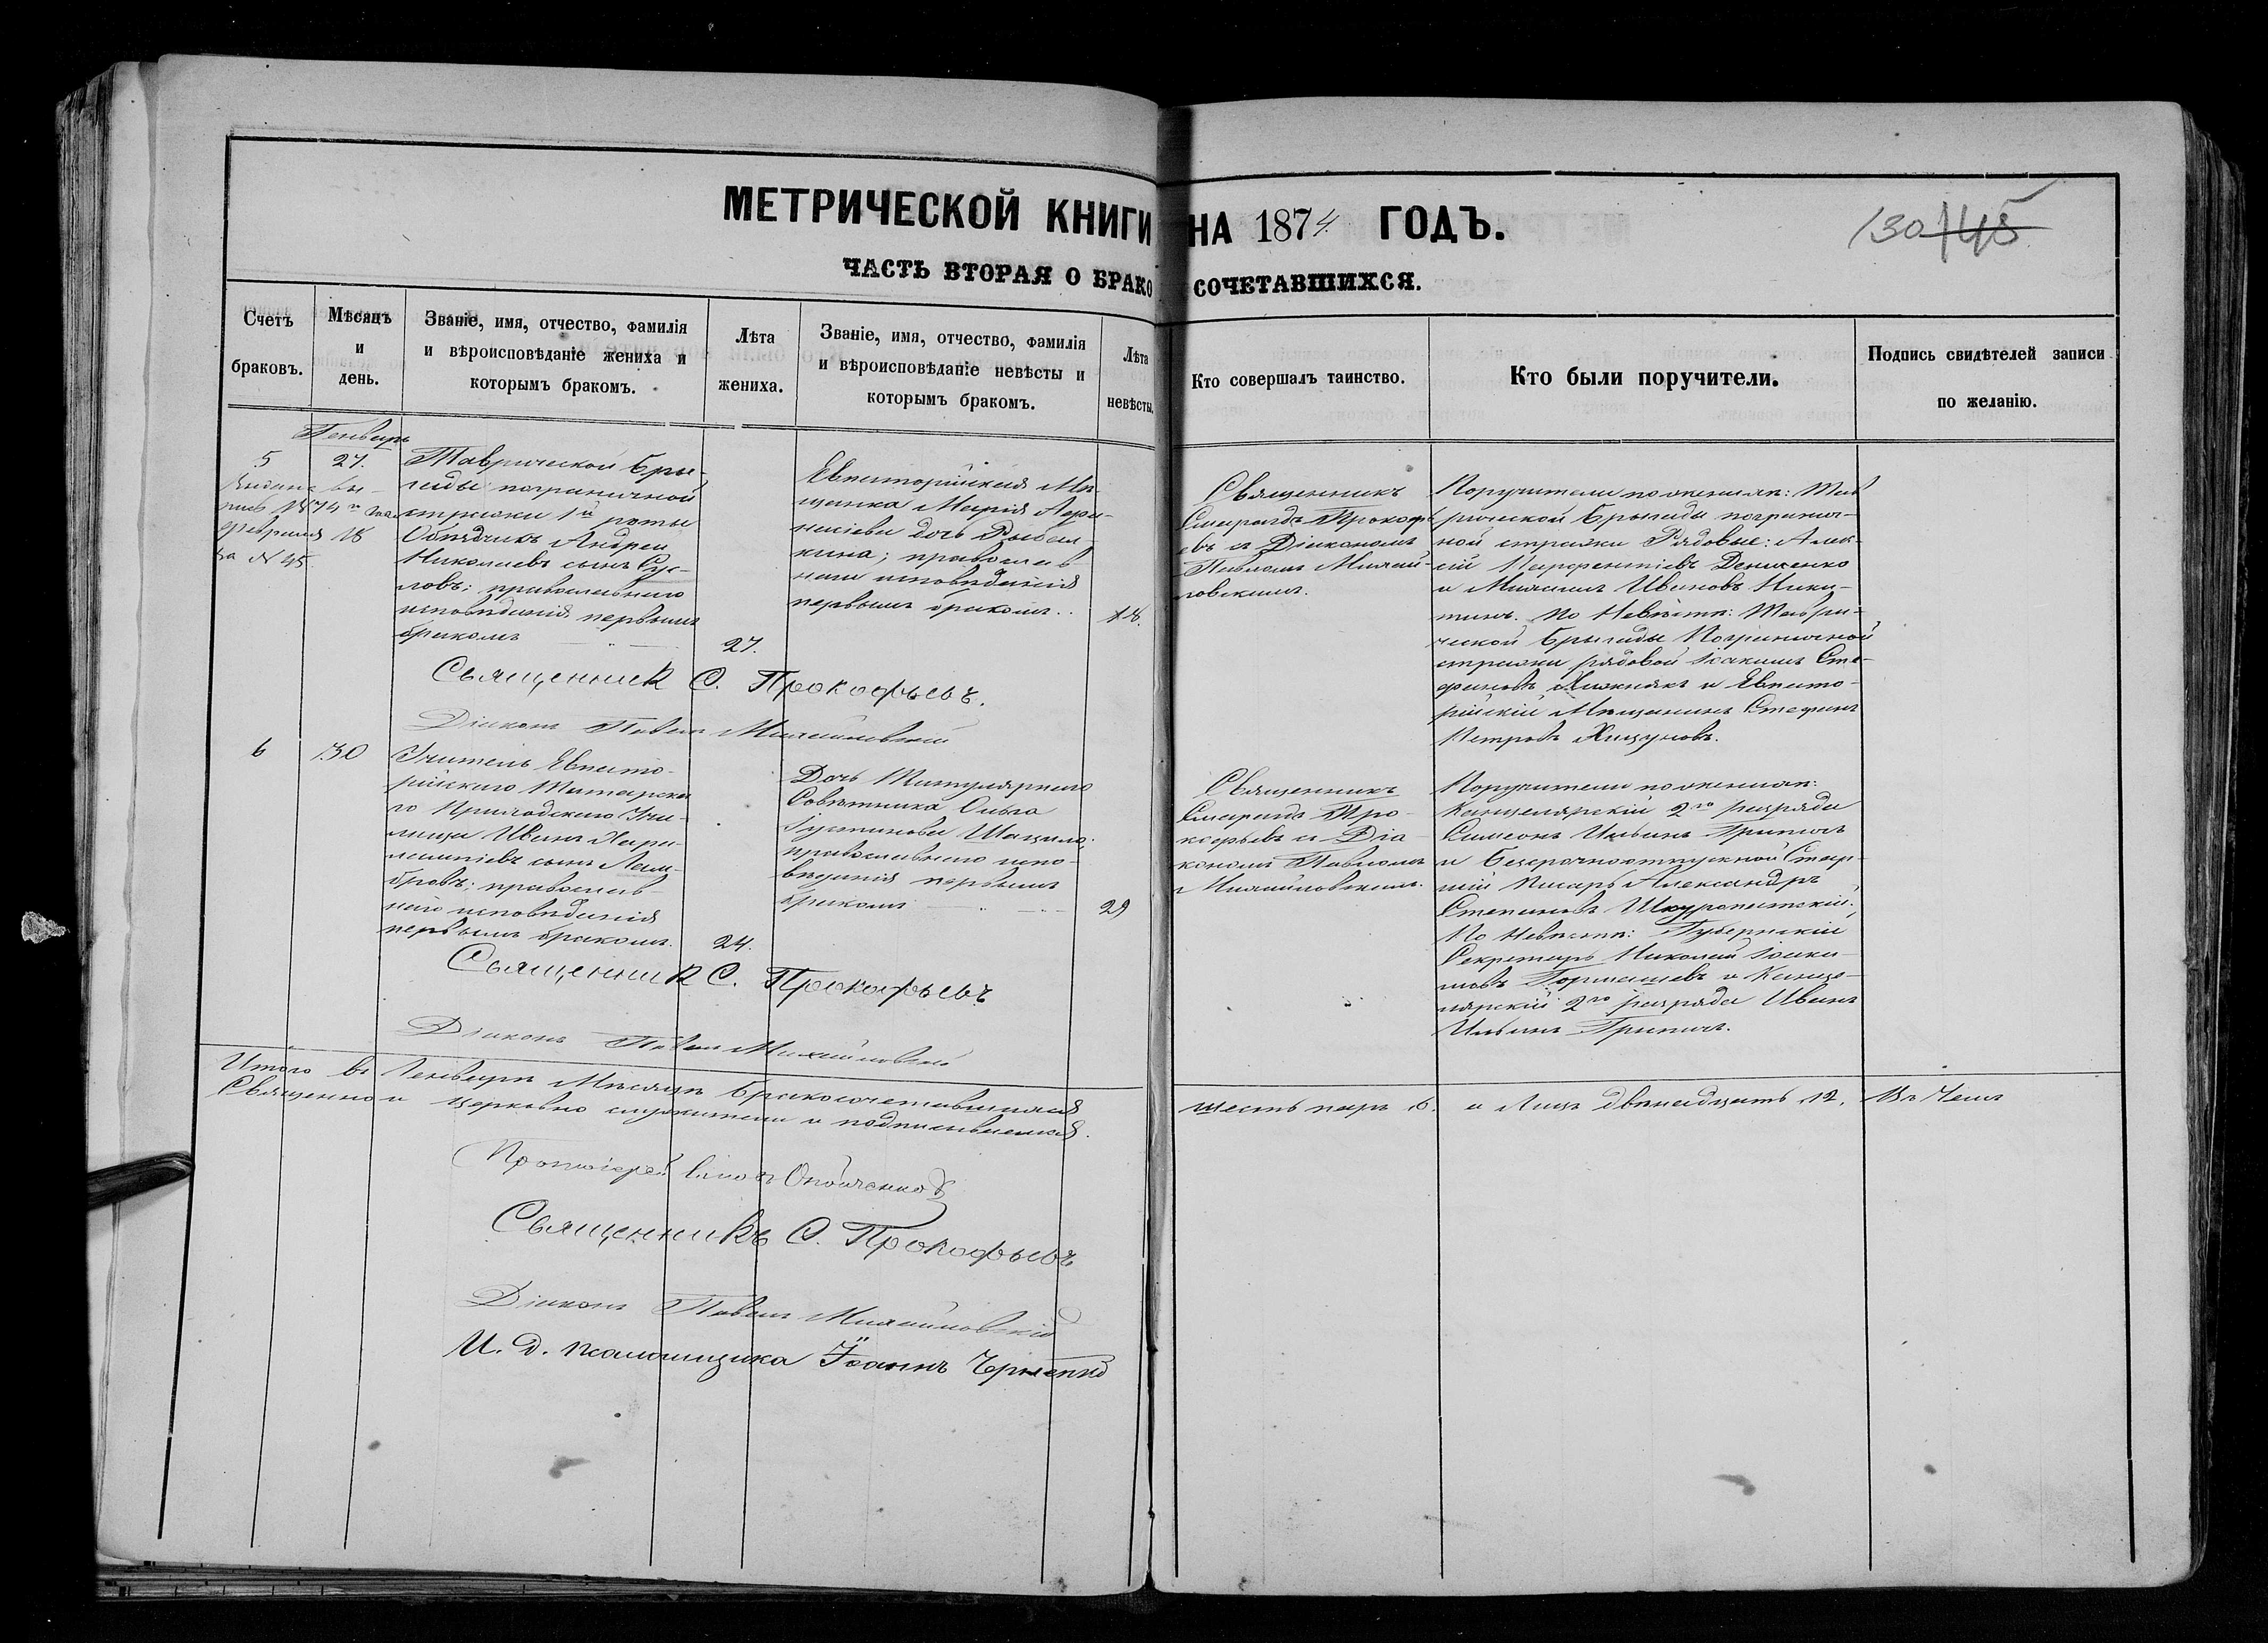 МЕТРИЧЕСКОЙ КНИГИ НА 1874 ГОДЪ.
130 145
ЧАСТЬ ВТОРАЯ О БРАКОСОЧЕТАВШИХСЯ.
Счетъ браковъ.
Мѣсяцъ и день.
Званіе, имя, отчество, фамилія
и вѣроисповѣданіе жениха и
которымъ бракомъ.
Лѣта
жениха.
Званіе, имя, отчество, фамилія
и вѣроисповѣданіе невѣсты и
которымъ бракомъ.
Лѣта
невѣсты.
Кто совершалъ таинство.
Кто были поручители.
Подпись свидѣтелей записи
по желанію.
Генварь
5
27.
Выдана вы-
пись 1874 го
февраля 18
за N 45
Таврической бры-
гады пограничной
стражи 1й роты
Объѣдчикъ Андрей
Николаевъ сынъ Сус-
ловъ; православнаго
исповѣданія первымъ
бракомъ
27.
Евпаторійская Мѣ-
щанка Марія
дочь
православ-
наго исповѣданія
первымъ бракомъ.
18.
Священникъ
Смарагдъ Прокофь-
евъ съ Діакономъ
Павломъ Михай-
ловскимъ.
Поручители по женихѣ: Тав
рической Брыгады погранич-
ной стражи Рядовые: Алек-
сѣй Денисенко
и Михаилъ Ивановъ Ники-
тинъ. По Невѣстѣ: Таври-
ческой Брыгады Пограничной
стражи рядовой Іоакимъ Сте-
фановъ и Евпато-
рійскій Мѣщанинъ Стефанъ
Петровъ
Священник С. Прокофьевъ.
Діаконъ Павелъ Михайловскій
6
30
Учитель Евпато-
рійскаго Татарска
го Приходскаго Учи-
лища Иванъ Хара-
лампіевъ сынъ Лам-
бровъ; православ-
наго исповѣданія
первымъ бракомъ.
24.
Дочь Титулярнаго
Совѣтника Ольга
Іустинова
православнаго испо-
вѣданія первымъ
бракомъ
29
Священникъ
Смарагдъ Про-
кофьевъ съ Діа-
кономъ Павломъ
Михайловскимъ.
Поручители по женихѣ:
Канцелярскій 2го разряда
Симеонъ Ильинъ
и Безсрочноотпускной Стар-
шій писарь Александръ
Степановъ Шкуропатскій;
По Невѣстѣ: Губернскій
Секретарь Николай Іоаки-
мовъ и Канце-
лярскій 2го разряда Иванъ
Ильинъ
Священник С. Прокофьевъ
Діаконъ Павелъ Михайловскій
Итого въ Генварѣ Мѣсяцѣ Бракосочетавшихся шесть паръ 6. а Лицъ двѣнадцать 12. Въ Чемъ
Священно и церковно служители и подписываемся.
Протоіерей
Священникъ С. Прокофьевъ
Діаконъ Павелъ Михайловскій
И. д. псаломщика Іоаннъ